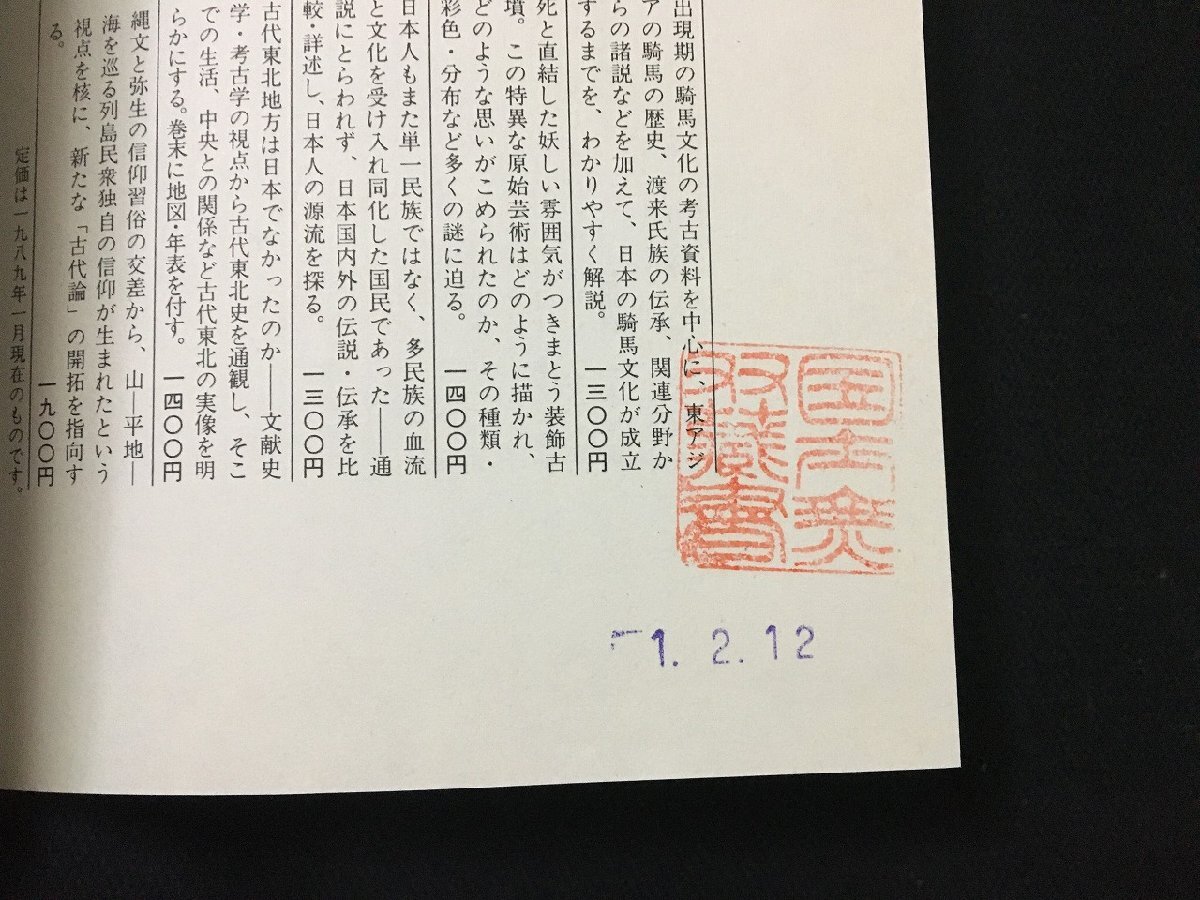 出現期の騎馬文化の考古資料を中心に、東アジ
アの騎馬の歴史、渡来氏族の伝承、関連分野か
らの諸説などを加えて、日本の騎馬文化が成立
するまでを、わかりやすく解説。 一三〇〇円
死と直結した妖しい雰囲気がつきまとう装飾古
墳。この特異な原始芸術はどのように描かれ、
どのような思いがこめられたのか、その種類・
彩色・分布など多くの謎に迫る。 一四〇〇円
日本人もまた単一民族ではなく、多民族の血流
と文化を受け入れ同化した国民であった――通
説にとらわれず、日本国内外の伝説・伝承を比
較・詳述し、日本人の源流を探る。 一三〇〇円
古代東北地方は日本でなかったのか――文献史
学・考古学の視点から古代東北史を通観し、そこ
での生活、中央との関係など古代東北の実像を明
らかにする。巻末に地図・年表を付す。 一四〇〇円
縄文と弥生の信仰習俗の交差から、山―平地―
海を巡る列島民衆独自の信仰が生まれたという
視点を核に、新たな「古代論」の開拓を指向す
る。 一九〇〇円
定価は一九八九年一月現在のものです。
蔵書
1. 2. 12